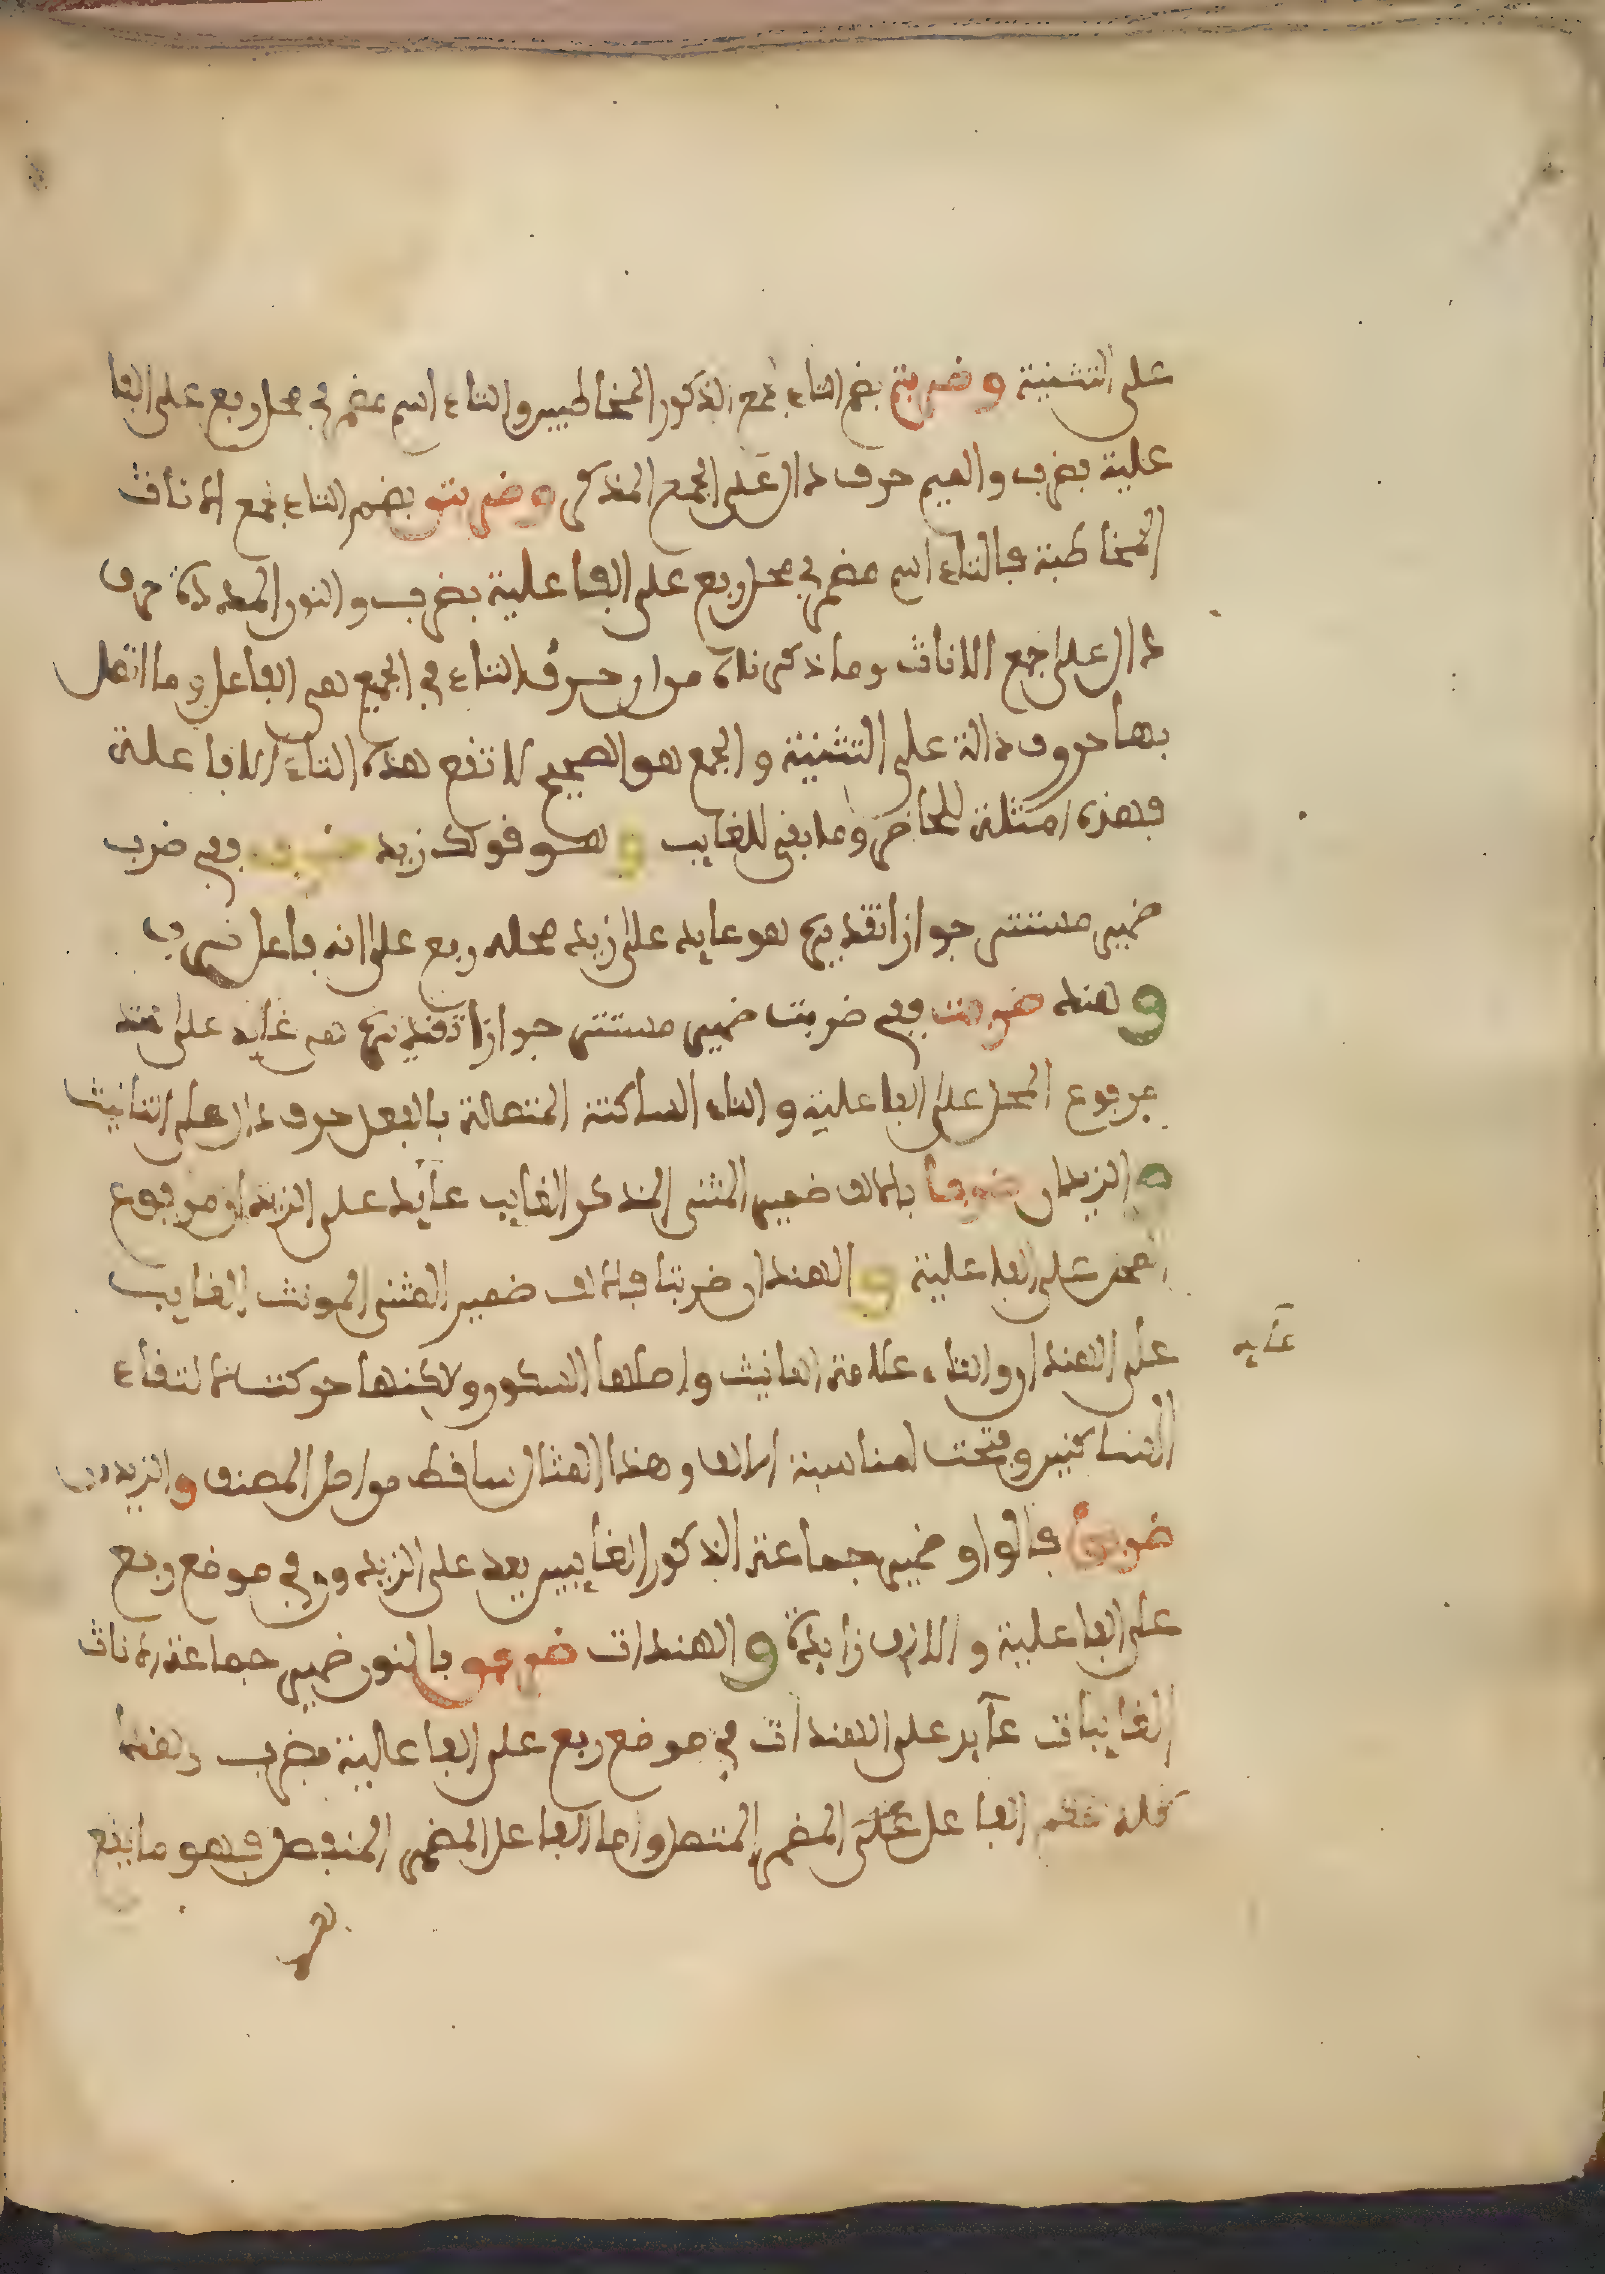 على التثنية وضربتم بضم التاء لجمع الذكور المخاطبين والتاء اسم مضمر في محل رفع على الفا
علية بضرب والميم حرف دال على الجمع المذكر وضربتن بضم التاء لجمع الاناث
المخاطبة فالتاء اسم مضمر في محل رفع على الفاعلية بضرب والنون المشددة حرف
دال على جمع الاناث وما ذكرناه من ان حرف التاء في الجميع هى الفاعل وما اتصل
بها حروف دالة على التثنية والجمع هو الصحيح لا تقع هذه التاء الا فاعلة
فهذه امثلة للحاضر وما بقي للغايب وهو قولك زيد ضرب ففي ضرب
ضمير مستتر جوازا تقديره هو عايد على زيد محله رفع على انه فاعل ضرب
وهند ضربت ففي ضربت ضمير مستتر جوازا تقديره هى عايد على هند
مرفوع المحل على الفاعلية والتاء الساكنة المتصلة بالفعل حرف دال على التانيث
والزيدان ضربا بالالف ضمير المثنى المذكر الغايب عايد على الزيدان مرفوع
المحل على الفاعلية والهندان ضربتا فالالف ضمير المثنى المونث الغايب
عايد
على الهندان والتاء علامة التانيث واصلها السكون ولاكنها حركت لالتقاء
الساكنين وفتحت لمناسبة الالف وهذا المثال ساقط من اصل المصنف والزيدون
ضربوا فالواو ضمير جماعة الذكور الغايبين يعد على الزيدون في موضع رفع
على الفاعلية والالف زايدة والهندات ضربن بالنون ضمير جماعة الاناث
الغايبات عآيد على الهندات في موضع رفع على الفاعلية بضرب وهذا
كله الفاعل المضمر المتصل واما الفاعل المضمر المنفصل فهو ما يقع